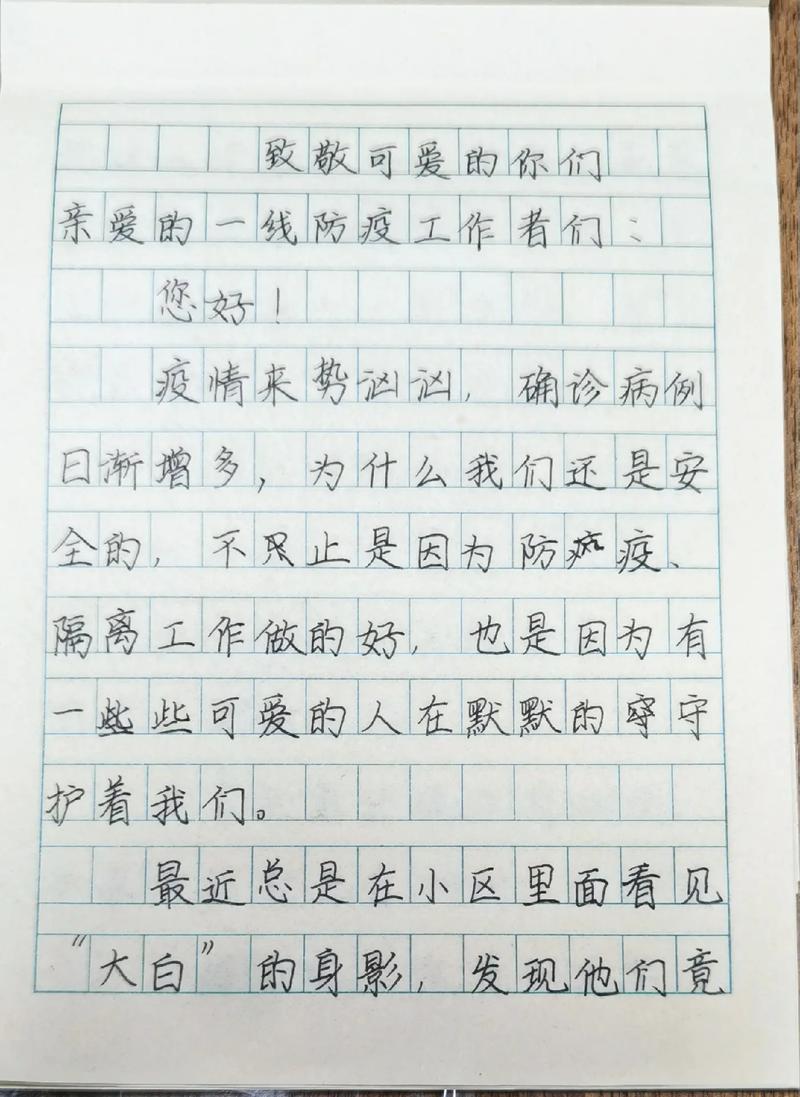 致敬可爱的你们
亲爱的一线防疫工作者们：
您好！
疫情来势汹汹，确诊病例
日渐增多，为什么我们还是安
全的，不止是因为防疫、
隔离工作做的好，也是因为有
一些可爱的人在默默的守
护着我们。
最近总是在小区里面看见
“大白”的身影，发现他们竟